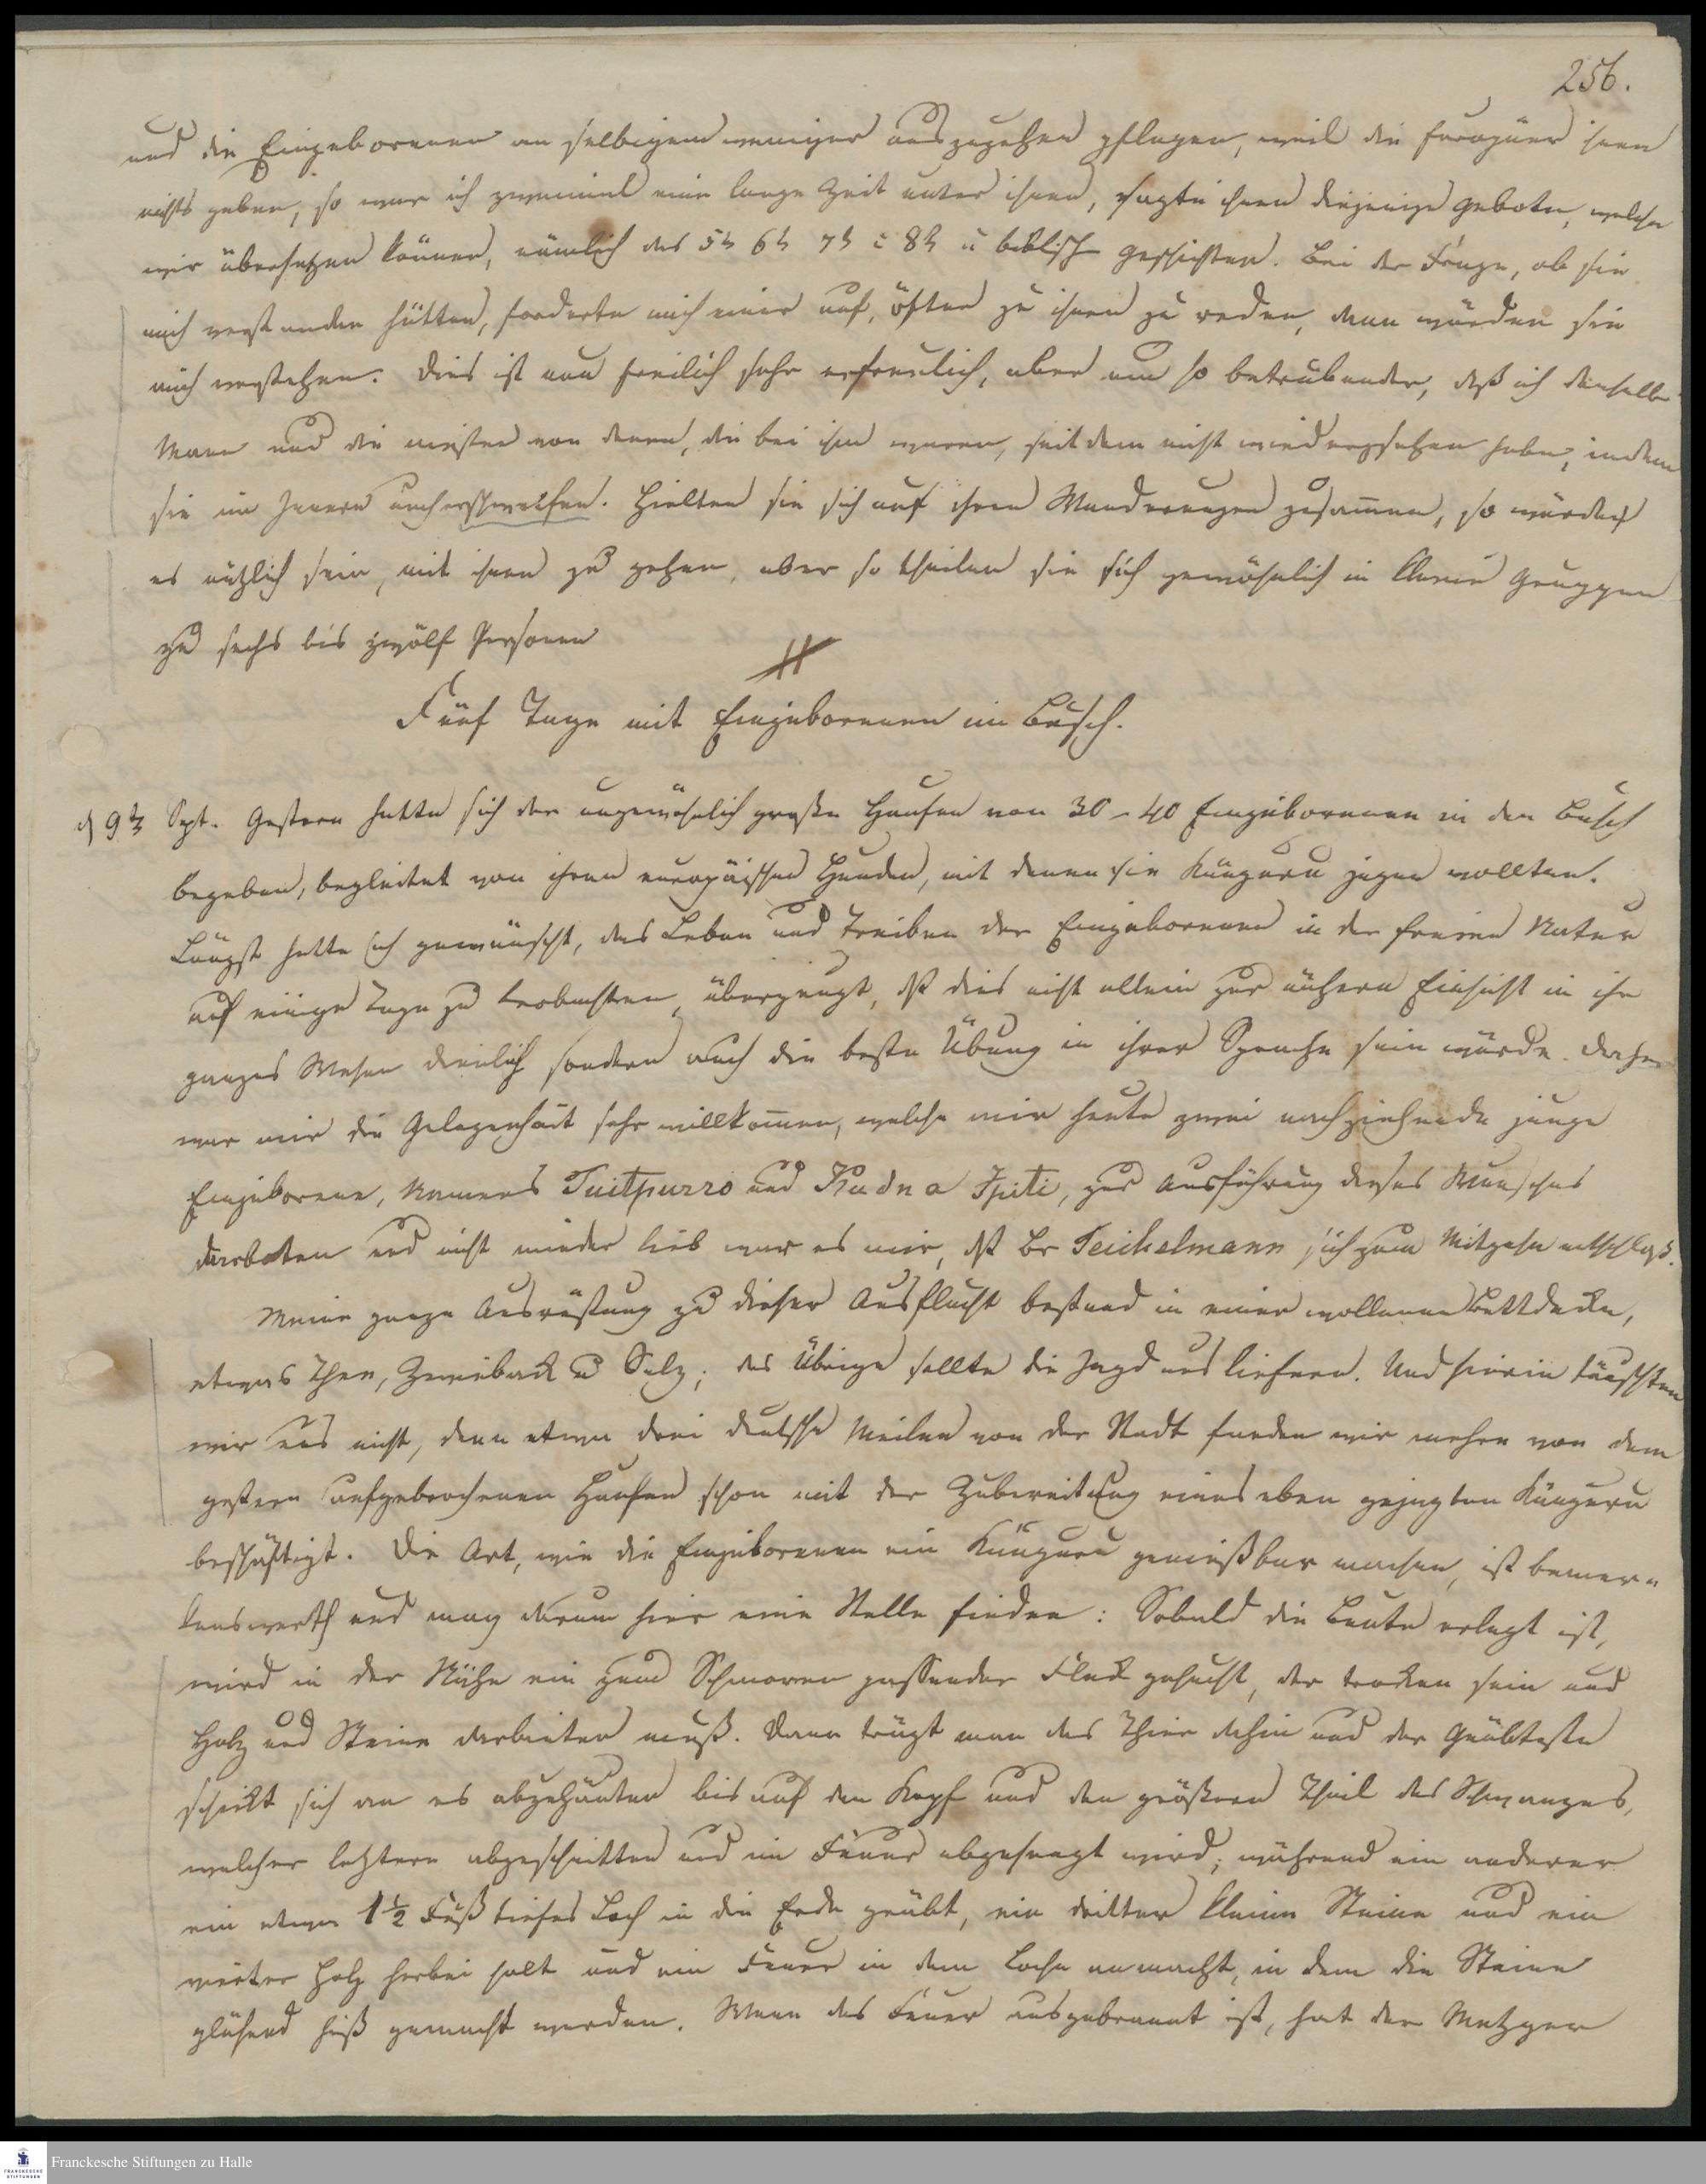 256.
und die Eingeborenen an selbigem weniger auszugehen pflegen, weil die Europäer ihnen
nichts geben, so war ich zweimal eine lange Zeit unter ihnen, sagte ihnen diejenige Gebote, welche
wir übersetzen können, nämlich das 5t 6t 7t u 8t u biblisch Geschichten. Bei der Frage, ob sie
mich verstanden hätten, forderte mich einer auf, öfter zu ihnen zu reden, dann würden sie
mich verstehen. Dies ist nun freilich sehr erfreulich, aber um so betrübender, daß ich denselben
Mann und die meisten von denen, die bei ihm waren, seitdem nicht wiedergesehen habe, indem
sie im Innern umherschweifen. Hielten sie sich auf ihren Wanderungen zusammen, so würde
es nützlich sein, mit ihnen zu gehen, aber so theilen sie sich gewöhnlich in kleine Gruppen
zu sechs bis zwölf Personen
Fünf Tage mit Eingeborenen im Busch.
d 9t Sept. Gestern hatte sich der ungewöhnlich große Haufen von 30-40 Eingeborenen in den Busch
begeben, begleitet von ihren europäischen Hunden, mit denen sie Känguru jagen wollten.
Längst hatte ich gewünscht, das Leben und Treiben der Eingeborenen in der freien Natur
auf einige Tage zu beobachten, überzeugt, dß dies nicht allein zur nähern Einsicht in ihr
ganzes Wesen dienlich sondern auch die beste Übung in ihrer Sprache sein würde. Daher
war mir die Gelegenheit sehr willkomen, welche mir heute zwei nachziehende junge
Eingeborene, Namens Tuitpurro und Kadna Ipiti, zur Ausführung dieses Wunsches
darboten und nicht minder lieb war es mir, dß Br Teichelmann sich zum Mitgehn entschloß.
Meine ganze Ausrüstung zu dieser Ausflucht bestand in einer wollenen Bettdecke,
etwas Thee, Zwieback u Salz; das Übrige sollte die Jagd uns liefern. Und hierin täuschten
wir uns nicht, denn etwa drei deutsche Meilen von der Stadt fanden wir mehre von dem
gestern aufgebrochenen Haufen schon mit der Zubereitung eines eben gejagten Känguru
beschäftigt. Die Art, wie die Eingeborenen ein Känguru genießbar machen, ist bemer-
kenswerth und mag darum hier eine Stelle finden: Sobald die Beute erlegt ist,
wird in der Nähe ein zum Schmoren passender Fleck gesucht, der trocken sein und
Holz und Steine darbieten muß. Dann trägt man das Thier dahin und der Geübteste
schickt sich an es abzuhäuten bis auf den Kopf und den größern Theil des Schwanzes,
welcher letztere abgeschnitten und im Feuer abgesengt wird, während ein anderer
ein etwa 1½ Fuß tiefes Loch in die Erde gräbt, ein dritter kleine Steine und ein
vierter Holz herbei holt und ein Feuer in dem Loche anmacht, in dem die Steine
glühend heiß gemacht werden. Wenn das Feuer ausgebrannt ist, hat der Metzger
Franckesche Stiftungen zu Halle